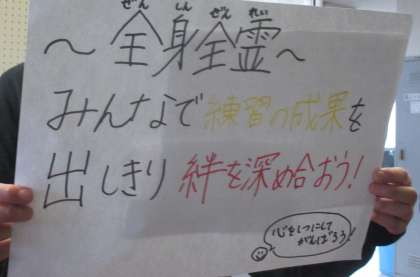 ぜんしんぜんれい
～全身全霊～
みんなで練習の成果を
出しきり絆を深め合おう！
心を1つにして
がんばろう！